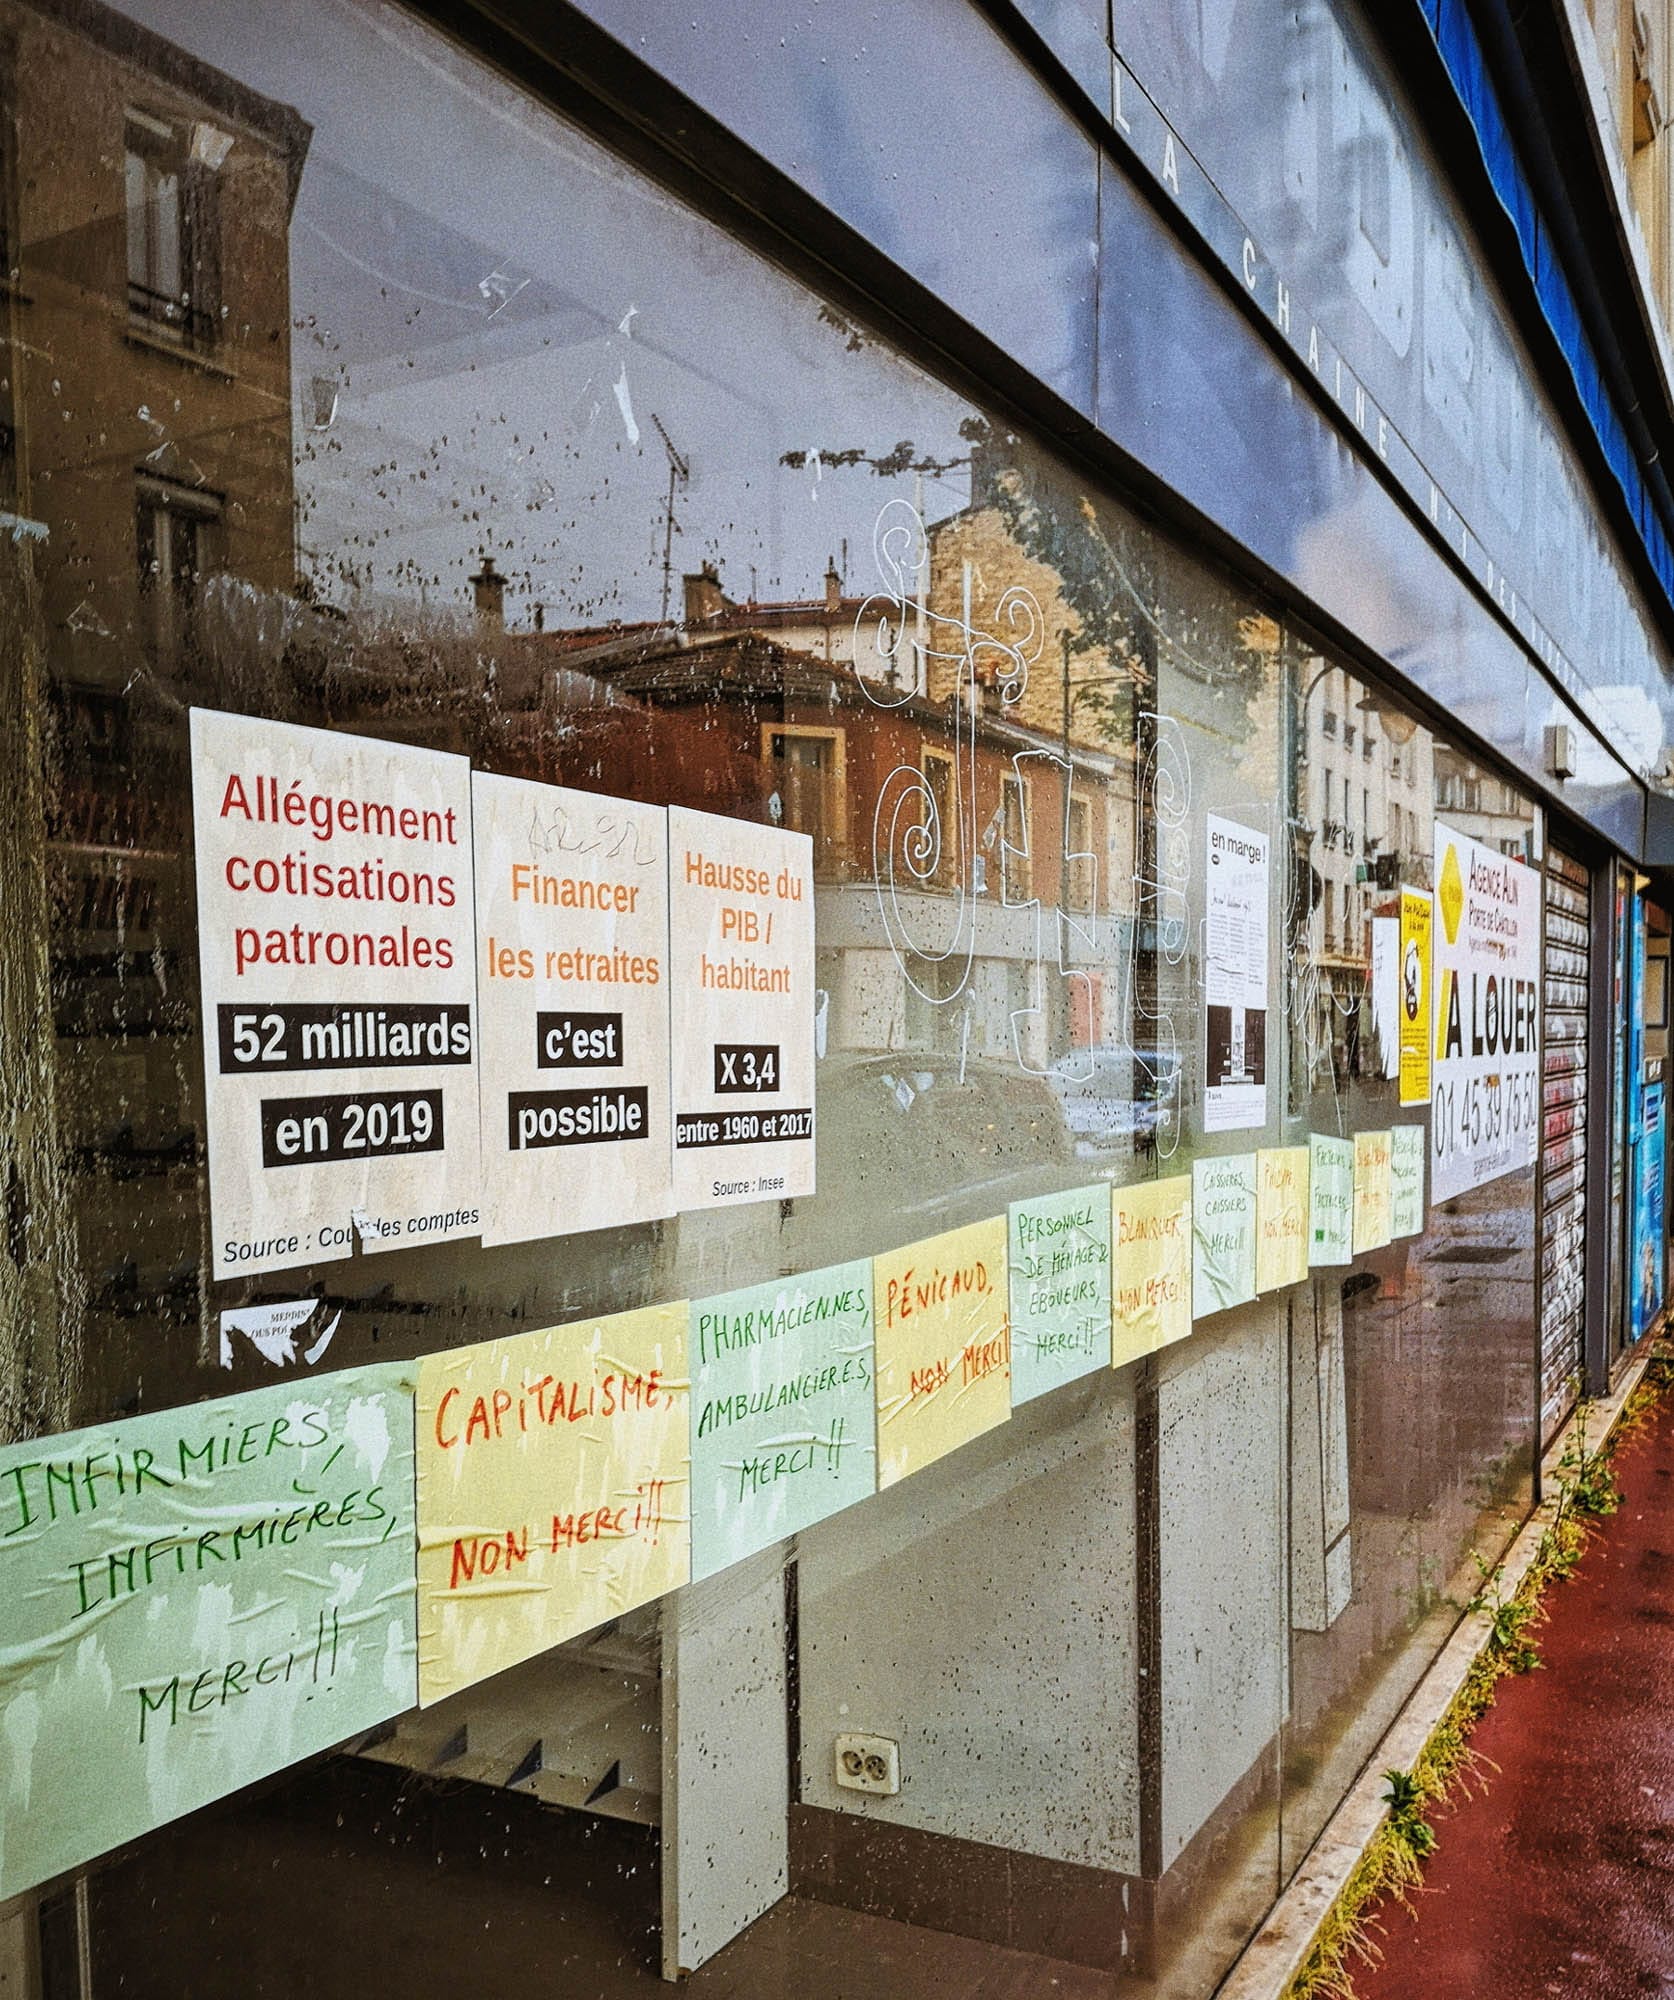 LA CHAINE N°1 DES
Allégement
cotisations
patronales
52 milliards
en 2019
Source : Cou des comptes
Financer
les retraites
c'est
possible
Hausse du
PIB /
habitant
X 3,4
entre 1960 et 2017
Source : Insee
en marge !
AGENCE ALIN
PORTE DE CHATILLON
A LOUER
01 45 39 75 50
INFIRMIERS,
INFIRMIÈRES,
MERCI !!
CAPITALISME,
NON MERCI !!
PHARMACIEN.NE.S,
AMBULANCIER.E.S,
MERCI !!
PÉNICAUD,
NON MERCI !
PERSONNEL
DE MÉNAGE &
ÉBOUEURS,
MERCI !!
BLANQUER,
NON MERCI !!
CAISSIÈRES,
CAISSIERS
MERCI !!
PHILIPPE,
NON MERCI
FACTEURS,
FACTRICES,